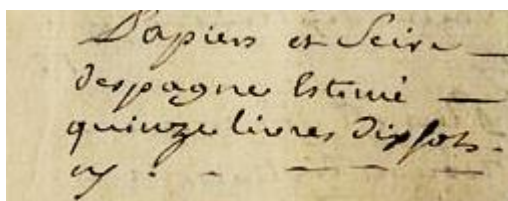 Papiers et Seire
despagne Estimé
quinze livres dix sols
cy